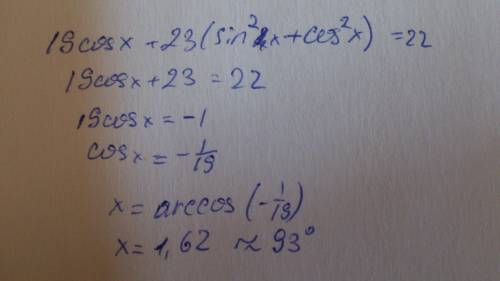 19cosx + 23(sin²x + cos²x) = 22
19cosx + 23 = 22
19cosx = -1
cosx = -1/19
x = arccos(-1/19)
x = 1,62 ≈ 93°